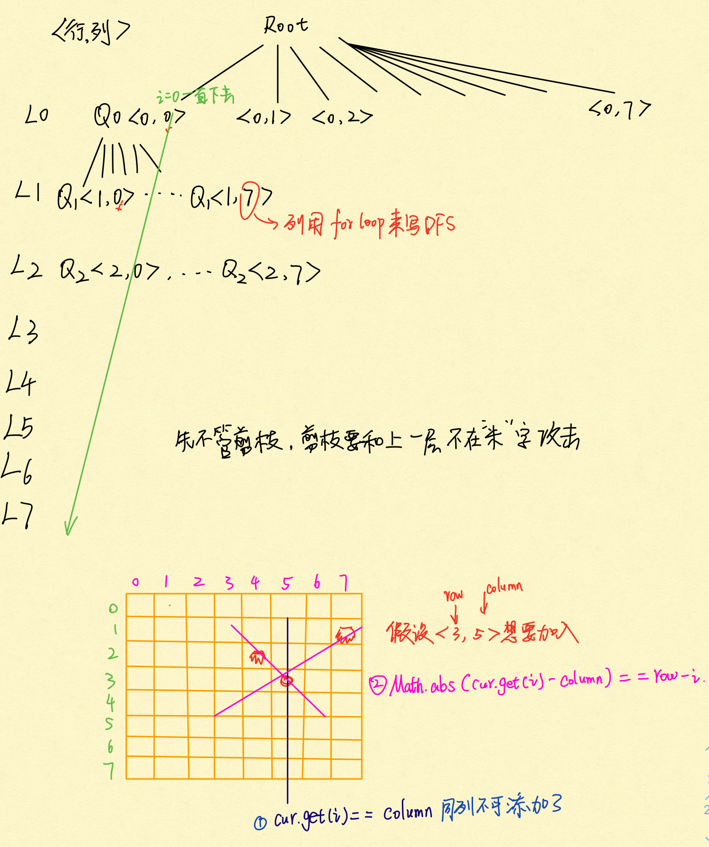 <行,列>
Root
i=0一直下去
L0 Q0<0,0> <0,1> <0,2> <0,7>
L1 Q1<1,0> .... Q1<1,7>
列用 for loop来写DFS
L2 Q2<2,0>.... Q2<2,7>
L3
L4
L5
L6
L7
先不管剪枝,剪枝要和上一层不在"米"字攻击
0 1 2 3 4 5 6 7
0
1
2
3
4
5
6
7
row column
假设<3,5>想要加入
② Math.abs(cur.get(i)-column)==row-i.
① cur.get(i)== column 同列不可添加了